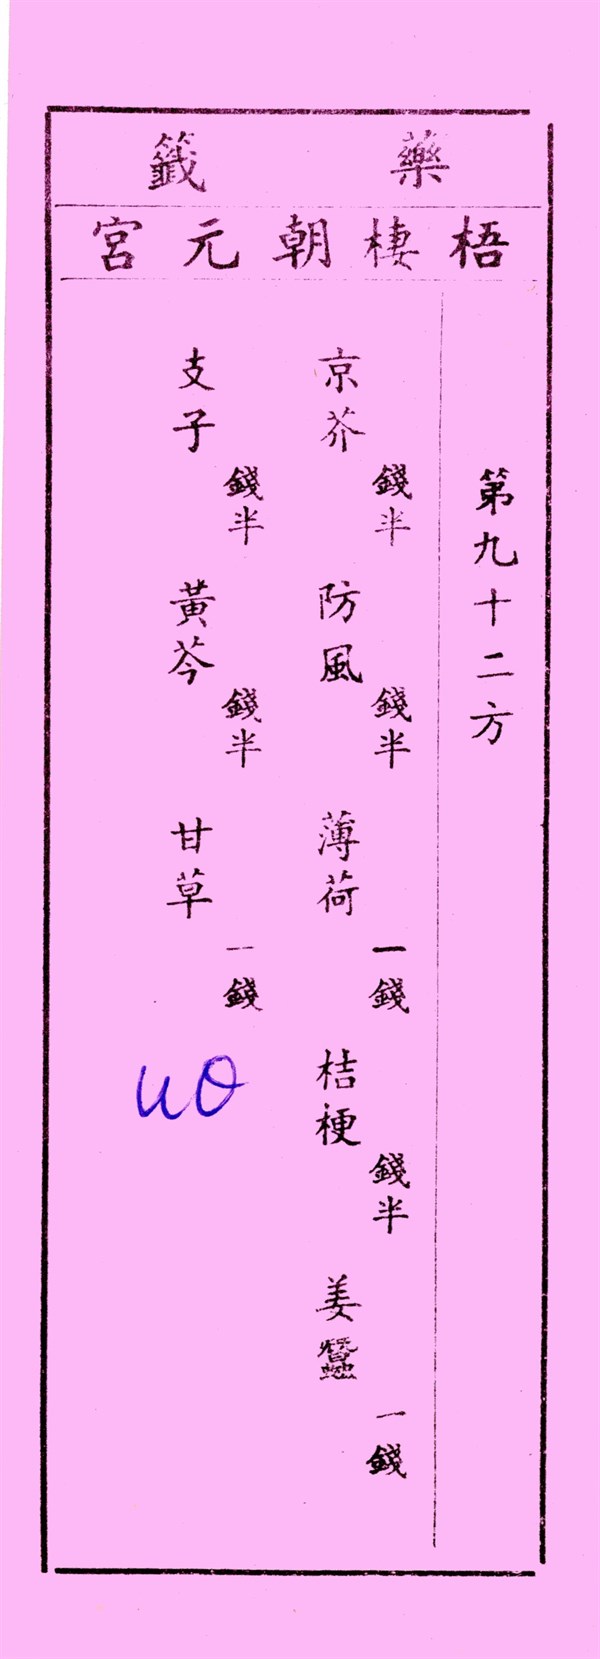 藥籤
梧棲朝元宮
第九十二方
京芥 錢半 防風 錢半 薄荷 一錢 桔梗 錢半 姜蠶 一錢
支子 錢半 黃芩 錢半 甘草 一錢